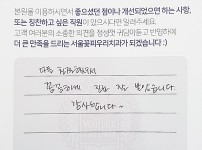 본원을 이용하시면서 좋으셨던 점이나 개선되었으면 하는 사항,
또는 칭찬하고 싶은 직원이 있으시다면 알려주세요.
고객 여러분의 소중한 의견을 정성껏 귀담아듣고 반영하여
더 큰 만족을 드리는 서울꽃피우리치과가 되겠습니다 :)
꼼꼼하게 진료 잘 받았습니다
감사합니다~